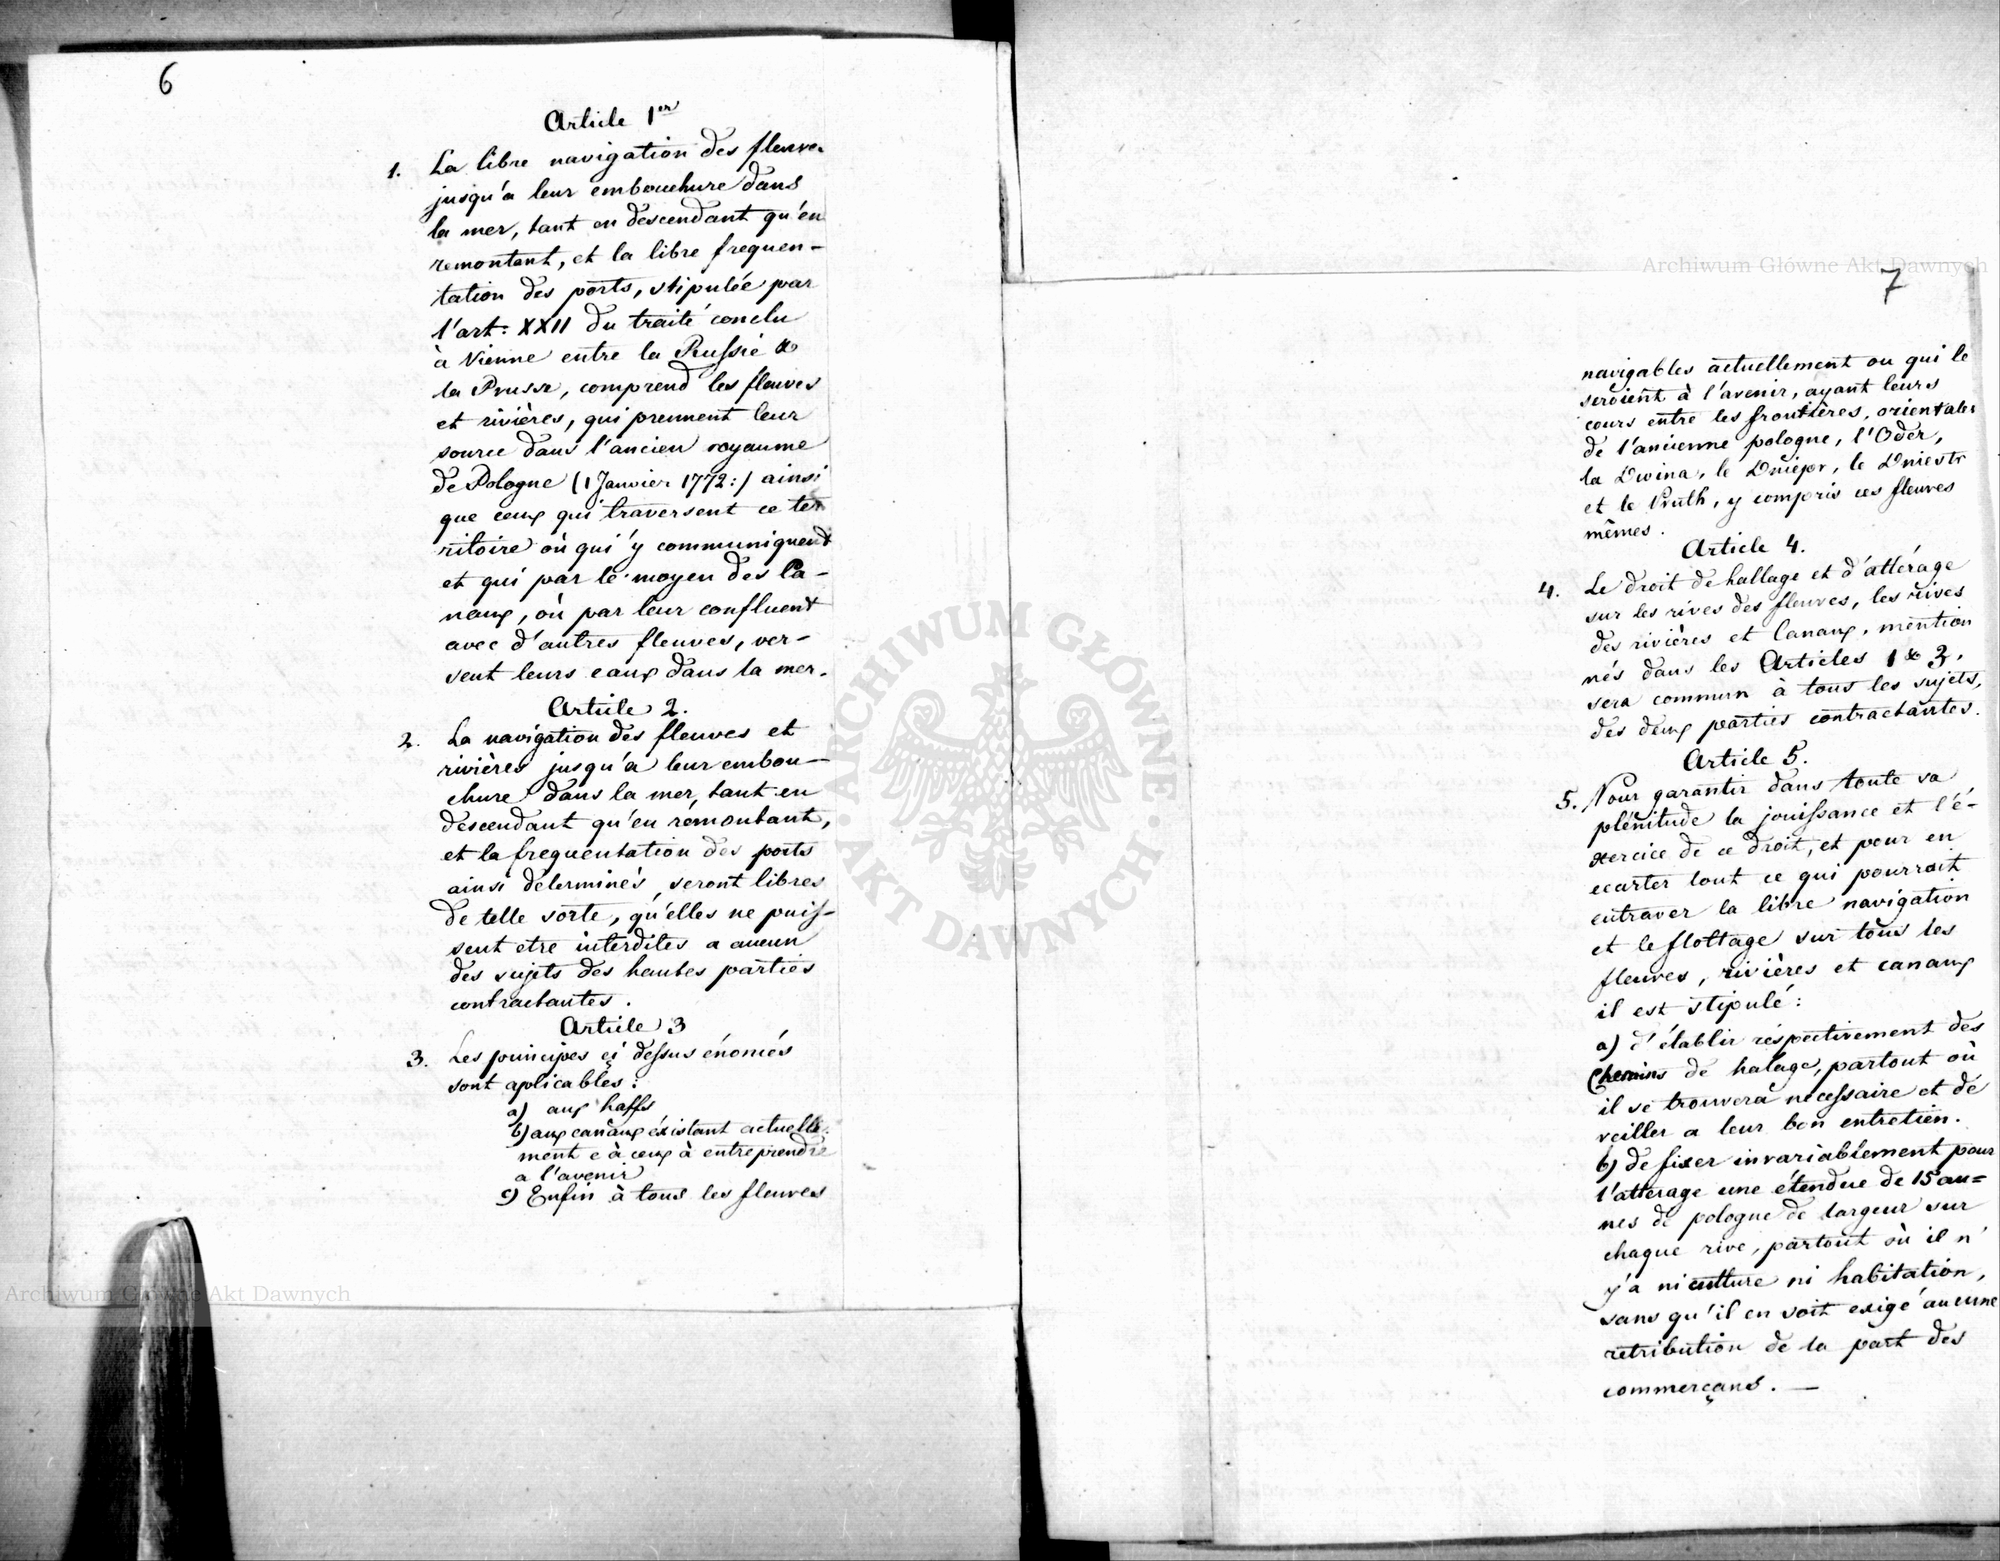 6
Article 1er
1. La libre navigation des fleuves
jusqu'a leur embouchure dans
la mer, tant en descendant qu'en
remontant, et la libre frequen-
tation des ports, stipulée par
l'art: XXII du traité conclu
à Vienne entre la Russie &
la Prusse, comprend les fleuves
et rivières, qui prennent leur
source dans l'ancien royaume
de Pologne (1 Janvier 1772:) ainsi
que ceux qui traversent ce ter
ritoire où qui y communiquent
et qui par le moyen des Ca-
naux, où par leur confluent
avec d'autres fleuves, ver-
sent leurs eaux dans la mer.
Article 2.
2. La navigation des fleuves et
rivières jusqu'a leur embou-
chure dans la mer, tant en
descendant qu'en remontant,
et la frequentation des ports
ainsi determinés, seront libres
de telle sorte, qu'elles ne puis-
sent etre interdites a aucun
des sujets des hautes parties
contractantes.
Article 3
3. Les principes ci dessus énoncés
sont aplicables:
a) aux haffs
b) aux canaux éxistant actuelle-
ment e à ceux à entreprendre
a l'avenir
c) Enfin à tous les fleuves
Archiwum Główne Akt Dawnych
ARCHIWUM GŁÓWNE AKT DAWNYCH
Archiwum Główne Akt Dawnych
7
navigables actuellement ou qui le
seroient à l'avenir, ayant leurs
cours entre les frontières, orientales
de l'ancienne pologne, l'Oder,
la Dwina, le Dniepr, le Dniestr
et le Pruth, y compris ces fleuves
mêmes.
Article 4.
4. Le droit de hallage et d'attérage
sur les rives des fleuves, les rives
des rivières et Canaux, mention
nés dans les Articles 1 & 3,
sera commun à tous les sujets,
des deux parties contractantes.
Article 5.
5. Pour garantir dans toute sa
plénitude la jouissance et l'é-
xercice de ce droit, et pour en
ecarter tout ce qui pourrait
entraver la libre navigation
et le flottage sur tous les
fleuves, rivières et canaux
il est stipulé:
a) d'établir réspectivement des
Chemins de halage, partout où
il se trouvera necessaire et de
veiller a leur bon entretien.
b) de fixer invariablement pour
l'atterage une étendue de 15 au=
nes de pologne de largeur sur
chaque rive, partout où il n'
y'a ni culture ni habitation,
sans qu'il en soit exigé aucune
retribution de la part des
commerçans. —